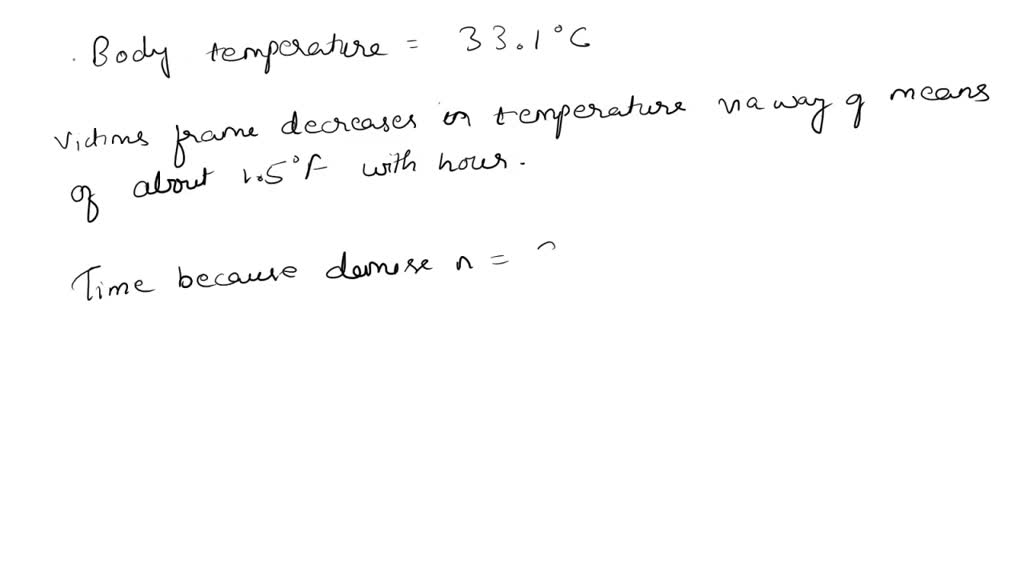 Body temperature = 33.1°C
Victims frame decreases in temperature via way of means
of about 1.5°F with hour.
Time because demise n = ?